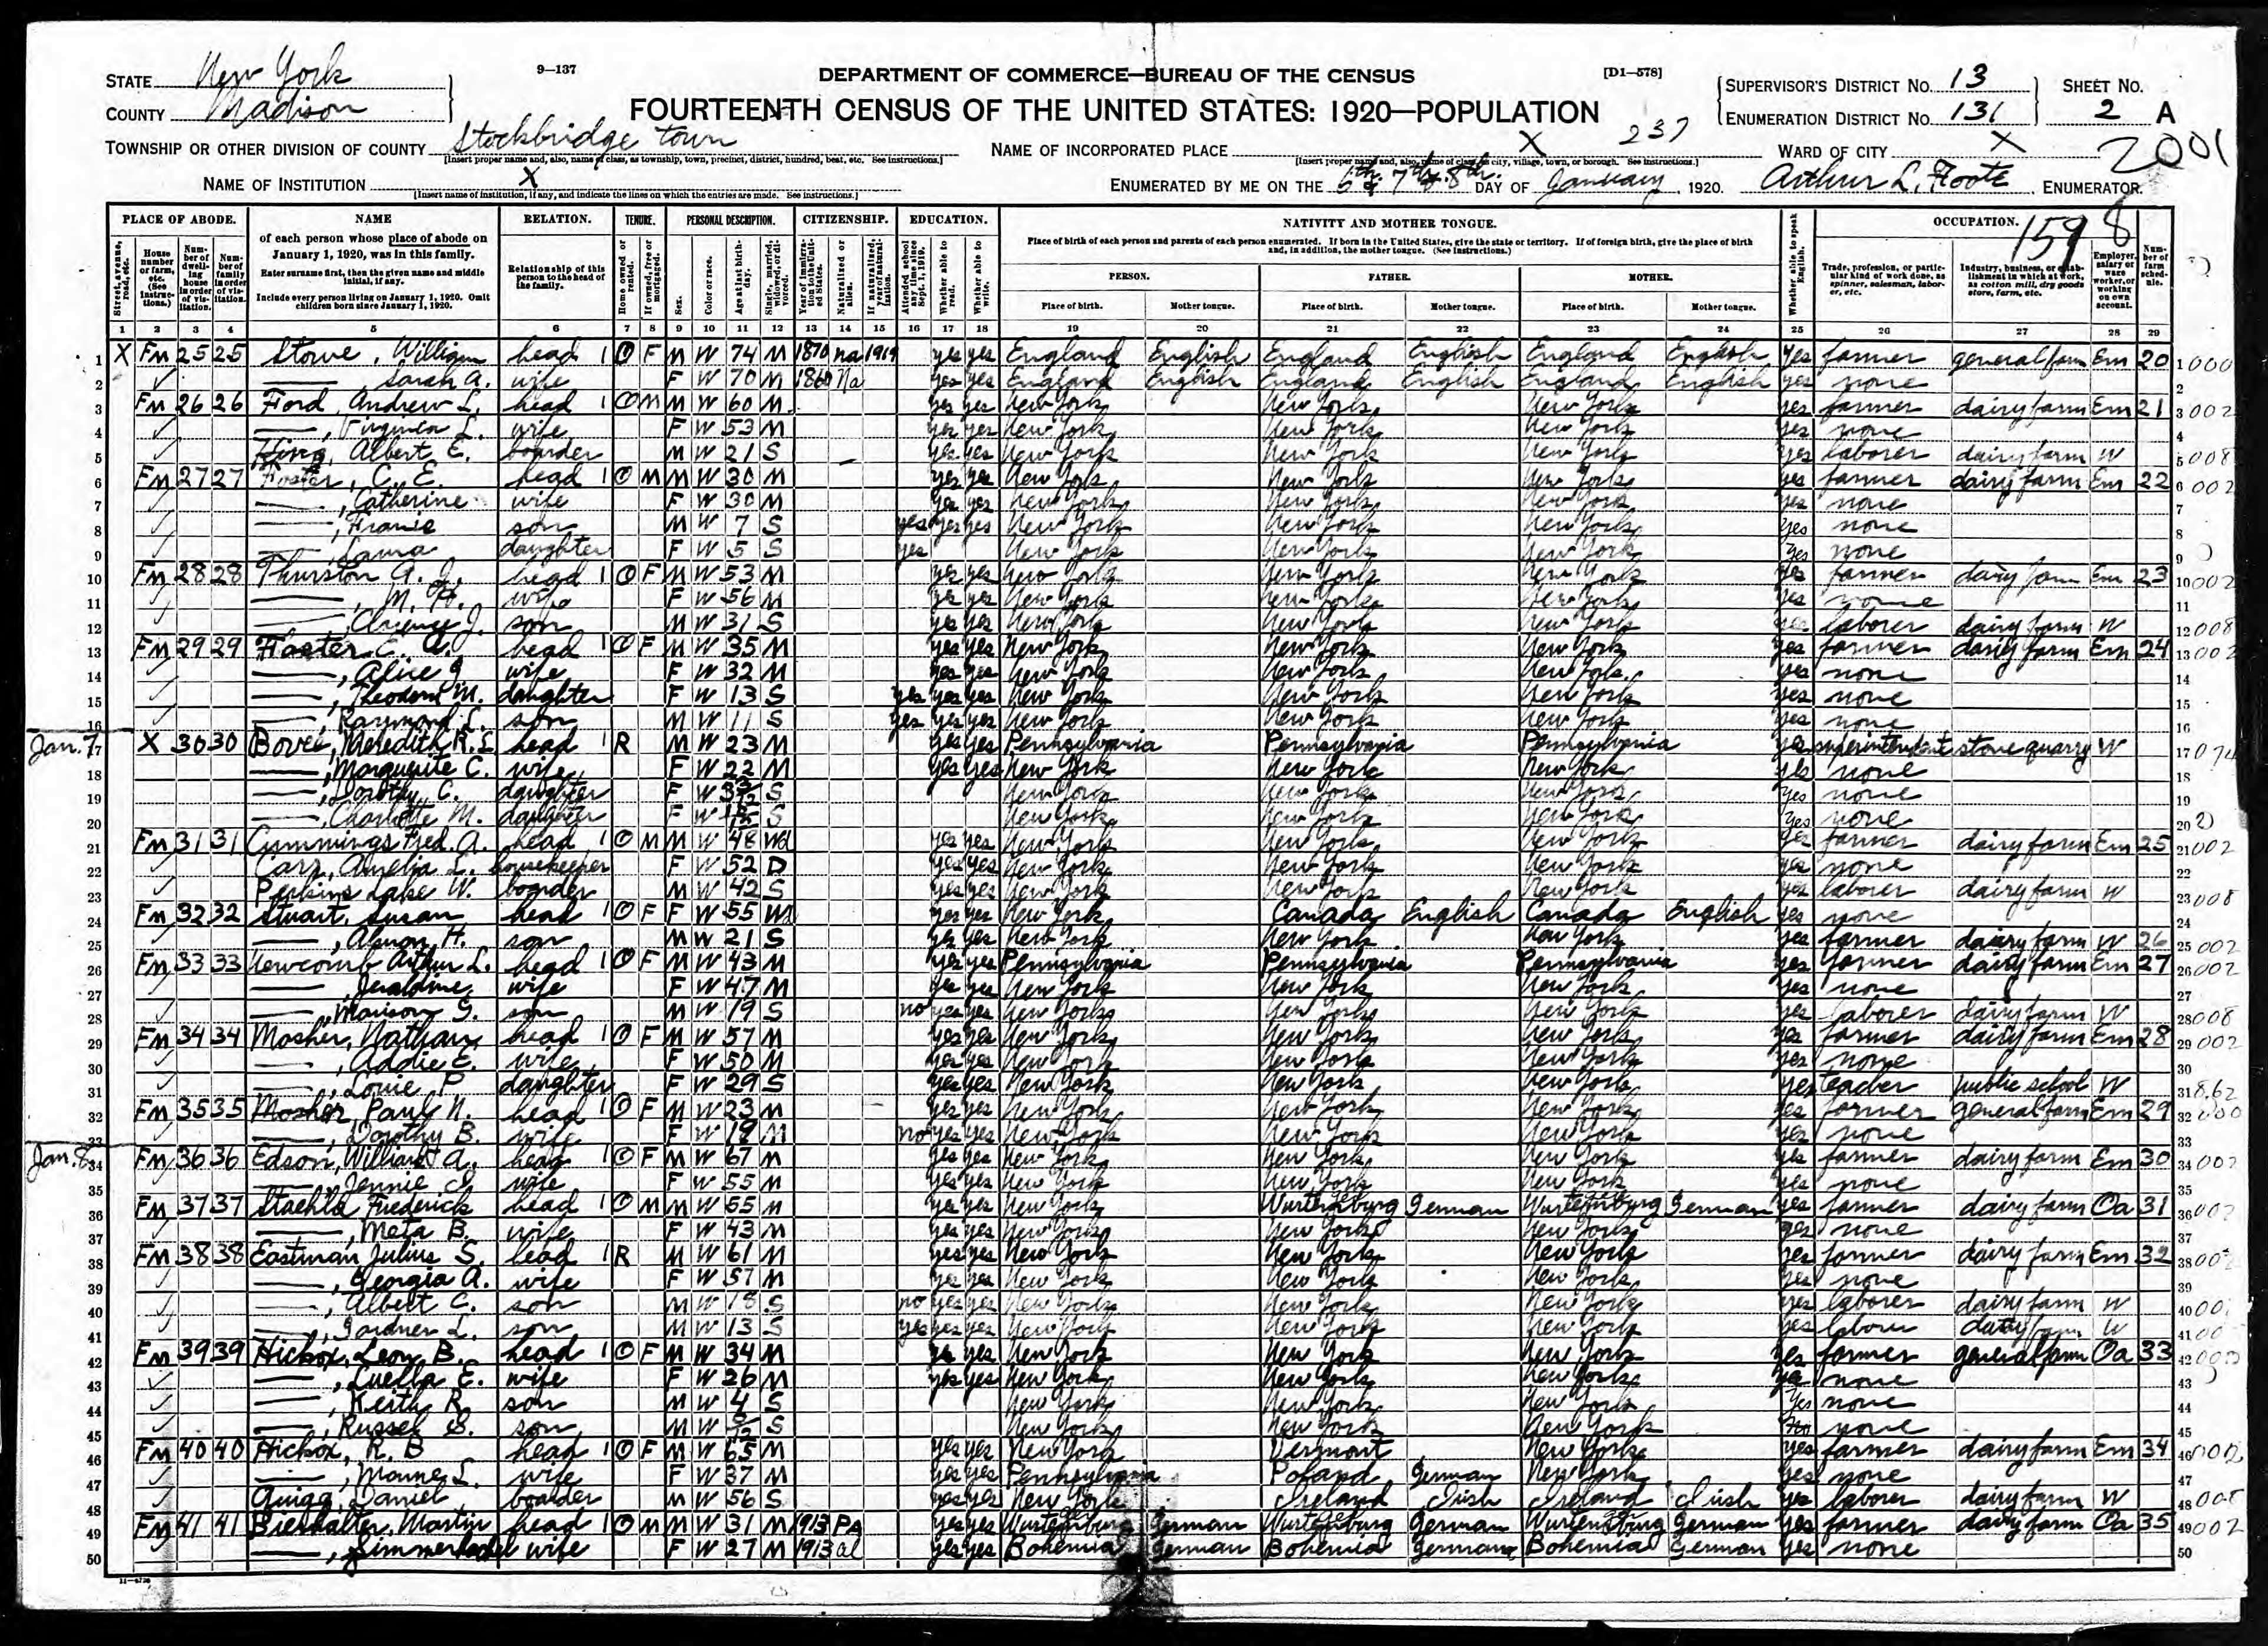 9—137
DEPARTMENT OF COMMERCE—BUREAU OF THE CENSUS
[D1—578]
STATE New York
COUNTY Madison
FOURTEENTH CENSUS OF THE UNITED STATES: 1920—POPULATION
SUPERVISOR'S DISTRICT NO. 13
SHEET NO.
ENUMERATION DISTRICT NO. 131
2 A
TOWNSHIP OR OTHER DIVISION OF COUNTY Stockbridge town
[Insert proper name and, also, name of class, as township, town, precinct, district, hundred, beat, etc. See instructions.]
NAME OF INCORPORATED PLACE X 237
[Insert proper name and, also, name of class, as city, village, town, or borough. See instructions.]
WARD OF CITY X
2001
NAME OF INSTITUTION X
[Insert name of institution, if any, and indicate the lines on which the entries are made. See instructions.]
ENUMERATED BY ME ON THE 6th 7th & 8th DAY OF January, 1920. Arthur L. Foote, ENUMERATOR.
PLACE OF ABODE. NAME RELATION. TENURE. PERSONAL DESCRIPTION. CITIZENSHIP. EDUCATION. NATIVITY AND MOTHER TONGUE. OCCUPATION. 1598
of each person whose place of abode on January 1, 1920, was in this family.
Enter surname first, then the given name and middle initial, if any.
Include every person living on January 1, 1920. Omit children born since January 1, 1920.
Relationship of this person to the head of the family.
Place of birth of each person and parents of each person enumerated. If born in the United States, give the state or territory. If of foreign birth, give the place of birth and, in addition, the mother tongue. (See instructions.)
PERSON. FATHER. MOTHER.
Place of birth. Mother tongue. Place of birth. Mother tongue. Place of birth. Mother tongue.
Whether able to speak English.
Trade, profession, or particular kind of work done, as spinner, salesman, laborer, etc.
Industry, business, or establishment in which at work, as cotton mill, dry goods store, farm, etc.
Employer, salary or wage worker, or working on own account.
Number of farm schedule.
1 2 3 4 5 6 7 8 9 10 11 12 13 14 15 16 17 18 19 20 21 22 23 24 25 26 27 28 29
1 X Fm 25 25 Stowe, William head 1 O F M W 74 M 1870 na 1919 yes yes England English England English England English yes farmer general farm Em 20
2 Sarah A. wife F W 70 M 1860 Na yes yes England English England English England English yes none
3 Fm 26 26 Ford, Andrew L. head 1 O M M W 60 M yes yes New York New York New York yes farmer dairy farm Em 21
4 , Virginia L. wife F W 53 M yes yes New York New York New York yes none
5 King, Albert E. boarder M W 21 S yes yes New York New York New York yes laborer dairy farm W
6 Fm 27 27 Foster, C. E. head 1 O M M W 30 M yes yes New York New York New York yes farmer dairy farm Em 22
7 , Catherine wife F W 30 M yes yes New York New York New York yes none
8 , Francis son M W 7 S yes yes yes New York New York New York yes none
9 , Laura daughter F W 5 S yes New York New York New York yes none
10 Fm 28 28 Thurston A. J. head 1 O F M W 53 M yes yes New York New York New York yes farmer dairy farm Em 23
11 , M. H. wife F W 56 M yes yes New York New York New York yes none
12 , Clarence J. son M W 31 S yes yes New York New York New York yes laborer dairy farm W
13 Fm 29 29 Foster C. A. head 1 O F M W 35 M yes yes New York New York New York yes farmer dairy farm Em 24
14 , Alice J wife F W 32 M yes yes New York New York New York yes none
15 , Theodora M. daughter F W 13 S yes yes yes New York New York New York yes none
16 , Raymond L. son M W 11 S yes yes yes New York New York New York yes none
Jan. 7 17 X 30 30 Bovee, Meredith R. head 1 R M W 23 M yes yes Pennsylvania Pennsylvania Pennsylvania yes superintendent stone quarry W
18 , Marguerite C. wife F W 22 M yes yes New York New York New York yes none
19 , Dorothy C. daughter F W S New York New York New York yes none
20 , Charlotte M. daughter F W S New York New York New York yes none
21 Fm 31 31 Cummings Fred. A. head 1 O M M W 48 Wd yes yes New York New York New York yes farmer dairy farm Em 25
22 Carr, Amelia L. housekeeper F W 52 D yes yes New York New York New York yes none
23 Perkins Lake W. boarder M W 42 S yes yes New York New York New York yes laborer dairy farm W
24 Fm 32 32 Stuart, Susan head 1 O F F W 55 Wd yes yes New York Canada English Canada English yes none
25 , Almon H. son M W 21 S yes yes New York New York New York yes farmer dairy farm W 26
26 Fm 33 33 Newcomb Arthur L. head 1 O F M W 43 M yes yes Pennsylvania Pennsylvania Pennsylvania yes farmer dairy farm Em 27
27 , Geraldine wife F W 47 M yes yes New York New York New York yes none
28 , Manson G. son M W 19 S no yes yes New York New York New York yes laborer dairy farm W
29 Fm 34 34 Mosher, Nathan head 1 O F M W 57 M yes yes New York New York New York yes farmer dairy farm Em 28
30 , Addie E. wife F W 50 M yes yes New York New York New York yes none
31 , Louie P daughter F W 29 S yes yes New York New York New York yes teacher public school W
32 Fm 35 35 Mosher, Paul N. head 1 O F M W 23 M yes yes New York New York New York yes farmer general farm Em 29
33 , Dorothy B. wife F W 19 M no yes yes New York New York New York yes none
Jan. 8 34 Fm 36 36 Edson, William A. head 1 O F M W 67 M yes yes New York New York New York yes farmer dairy farm Em 30
35 , Jennie wife F W 55 M yes yes New York New York New York yes none
36 Fm 37 37 Staehle Frederick head 1 O M M W 55 M yes yes New York Wurtemburg German Wurtemburg German yes farmer dairy farm Oa 31
37 , Meta B. wife F W 43 M yes yes New York New York New York yes none
38 Fm 38 38 Eastman Julius S. head 1 R M W 61 M yes yes New York New York New York yes farmer dairy farm Em 32
39 , Georgia A. wife F W 57 M yes yes New York New York New York yes none
40 , Albert C. son M W 18 S no yes yes New York New York New York yes laborer dairy farm W
41 , Gardner L. son M W 13 S yes yes yes New York New York New York yes laborer dairy farm W
42 Fm 39 39 Hickox, Leon B. head 1 O F M W 34 M yes yes New York New York New York yes farmer general farm Oa 33
43 , Luella E. wife F W 26 M yes yes New York New York New York yes none
44 , Keith R. son M W 4 S New York New York New York yes none
45 , Russel S. son M W S New York New York New York none
46 Fm 40 40 Hickox, R. B head 1 O F M W 65 M yes yes New York Vermont New York yes farmer dairy farm Em 34
47 , L. wife F W 37 M yes yes Pennsylvania Poland German New York yes none
48 Quigg, Daniel boarder M W 56 S yes yes New York Ireland Irish Ireland Irish yes laborer dairy farm W
49 Fm 41 41 Bierhalter, Martin head 1 O M M W 31 M 1913 Pa yes yes Wurtemburg German Wurtemburg German Wurtemburg German yes farmer dairy farm Oa 35
50 wife F W 27 M 1913 al yes yes Bohemia German Bohemia German Bohemia German yes none